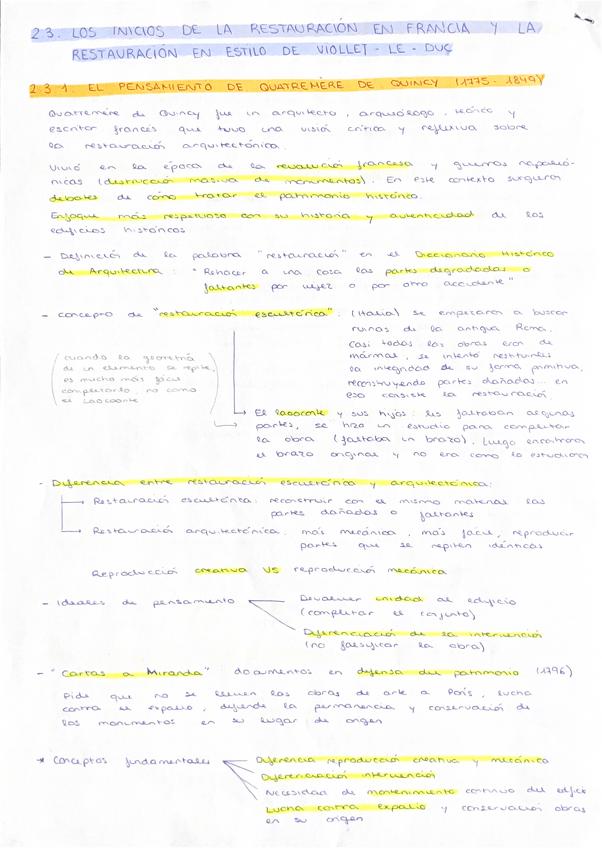 2.3. LOS INICIOS DE LA RESTAURACIÓN EN FRANCIA Y LA
RESTAURACIÓN EN ESTILO DE VIOLLET-LE-DUC
2.3.1. EL PENSAMIENTO DE QUATREMÈRE DE QUINCY (1775-1849)
Quatremère de Quincy fue un arquitecto, arqueólogo, teórico y
escritor francés que tuvo una visión crítica y reflexiva sobre
la restauración arquitectónica.
Vivió en la época de la revolución francesa y guerras napoleó-
nicas (destrucción masiva de monumentos). En este contexto surgieron
debates de cómo tratar el patrimonio histórico.
Enfoque más respetuoso con su historia y autenticidad de los
edificios históricos
- Definición de la palabra "restauración" en el Diccionario Histórico
de Arquitectura: "Rehacer a una cosa las partes degradadas o
faltantes por vejez o por otro accidente"
- concepto de "restauración escultórica": (Italia) se empezaron a buscar
ruinas de la antigua Roma.
Casi todas las obras eran de
mármol, se intentó restituirles
la integridad de su forma primitiva,
reconstruyendo partes dañadas... en
eso consiste la restauración.
(cuando la geometría
de un elemento se repite,
es mucho más fácil
completarlo, no como
el Laocoonte)
El laocoonte y sus hijos: les faltaban algunas
partes, se hizo un estudio para completar
la obra (faltaba un brazo). Luego encontraron
el brazo original y no era como lo estudiaron
- Diferencia entre restauración escultórica y arquitectónica:
Restauración escultórica: reconstruir con el mismo material las
partes dañadas o faltantes
Restauración arquitectónica: más mecánica, más fácil, reproducir
partes que se repiten idénticas
Reproducción creativa VS reproducción mecánica
- Ideales de pensamiento
Devolver unidad al edificio
(completar el conjunto)
Diferenciación de la intervención
(no falsificar la obra)
- "Cartas a Miranda" documentos en defensa del patrimonio (1796)
Pide que no se lleven las obras de arte a París, lucha
contra el expolio, defiende la permanencia y conservación de
los monumentos en su lugar de origen
* Conceptos fundamentales
Diferencia reproducción creativa y mecánica
Diferenciación intervención
Necesidad de mantenimiento continuo del edificio
Lucha contra expolio y conservación obras
en su origen